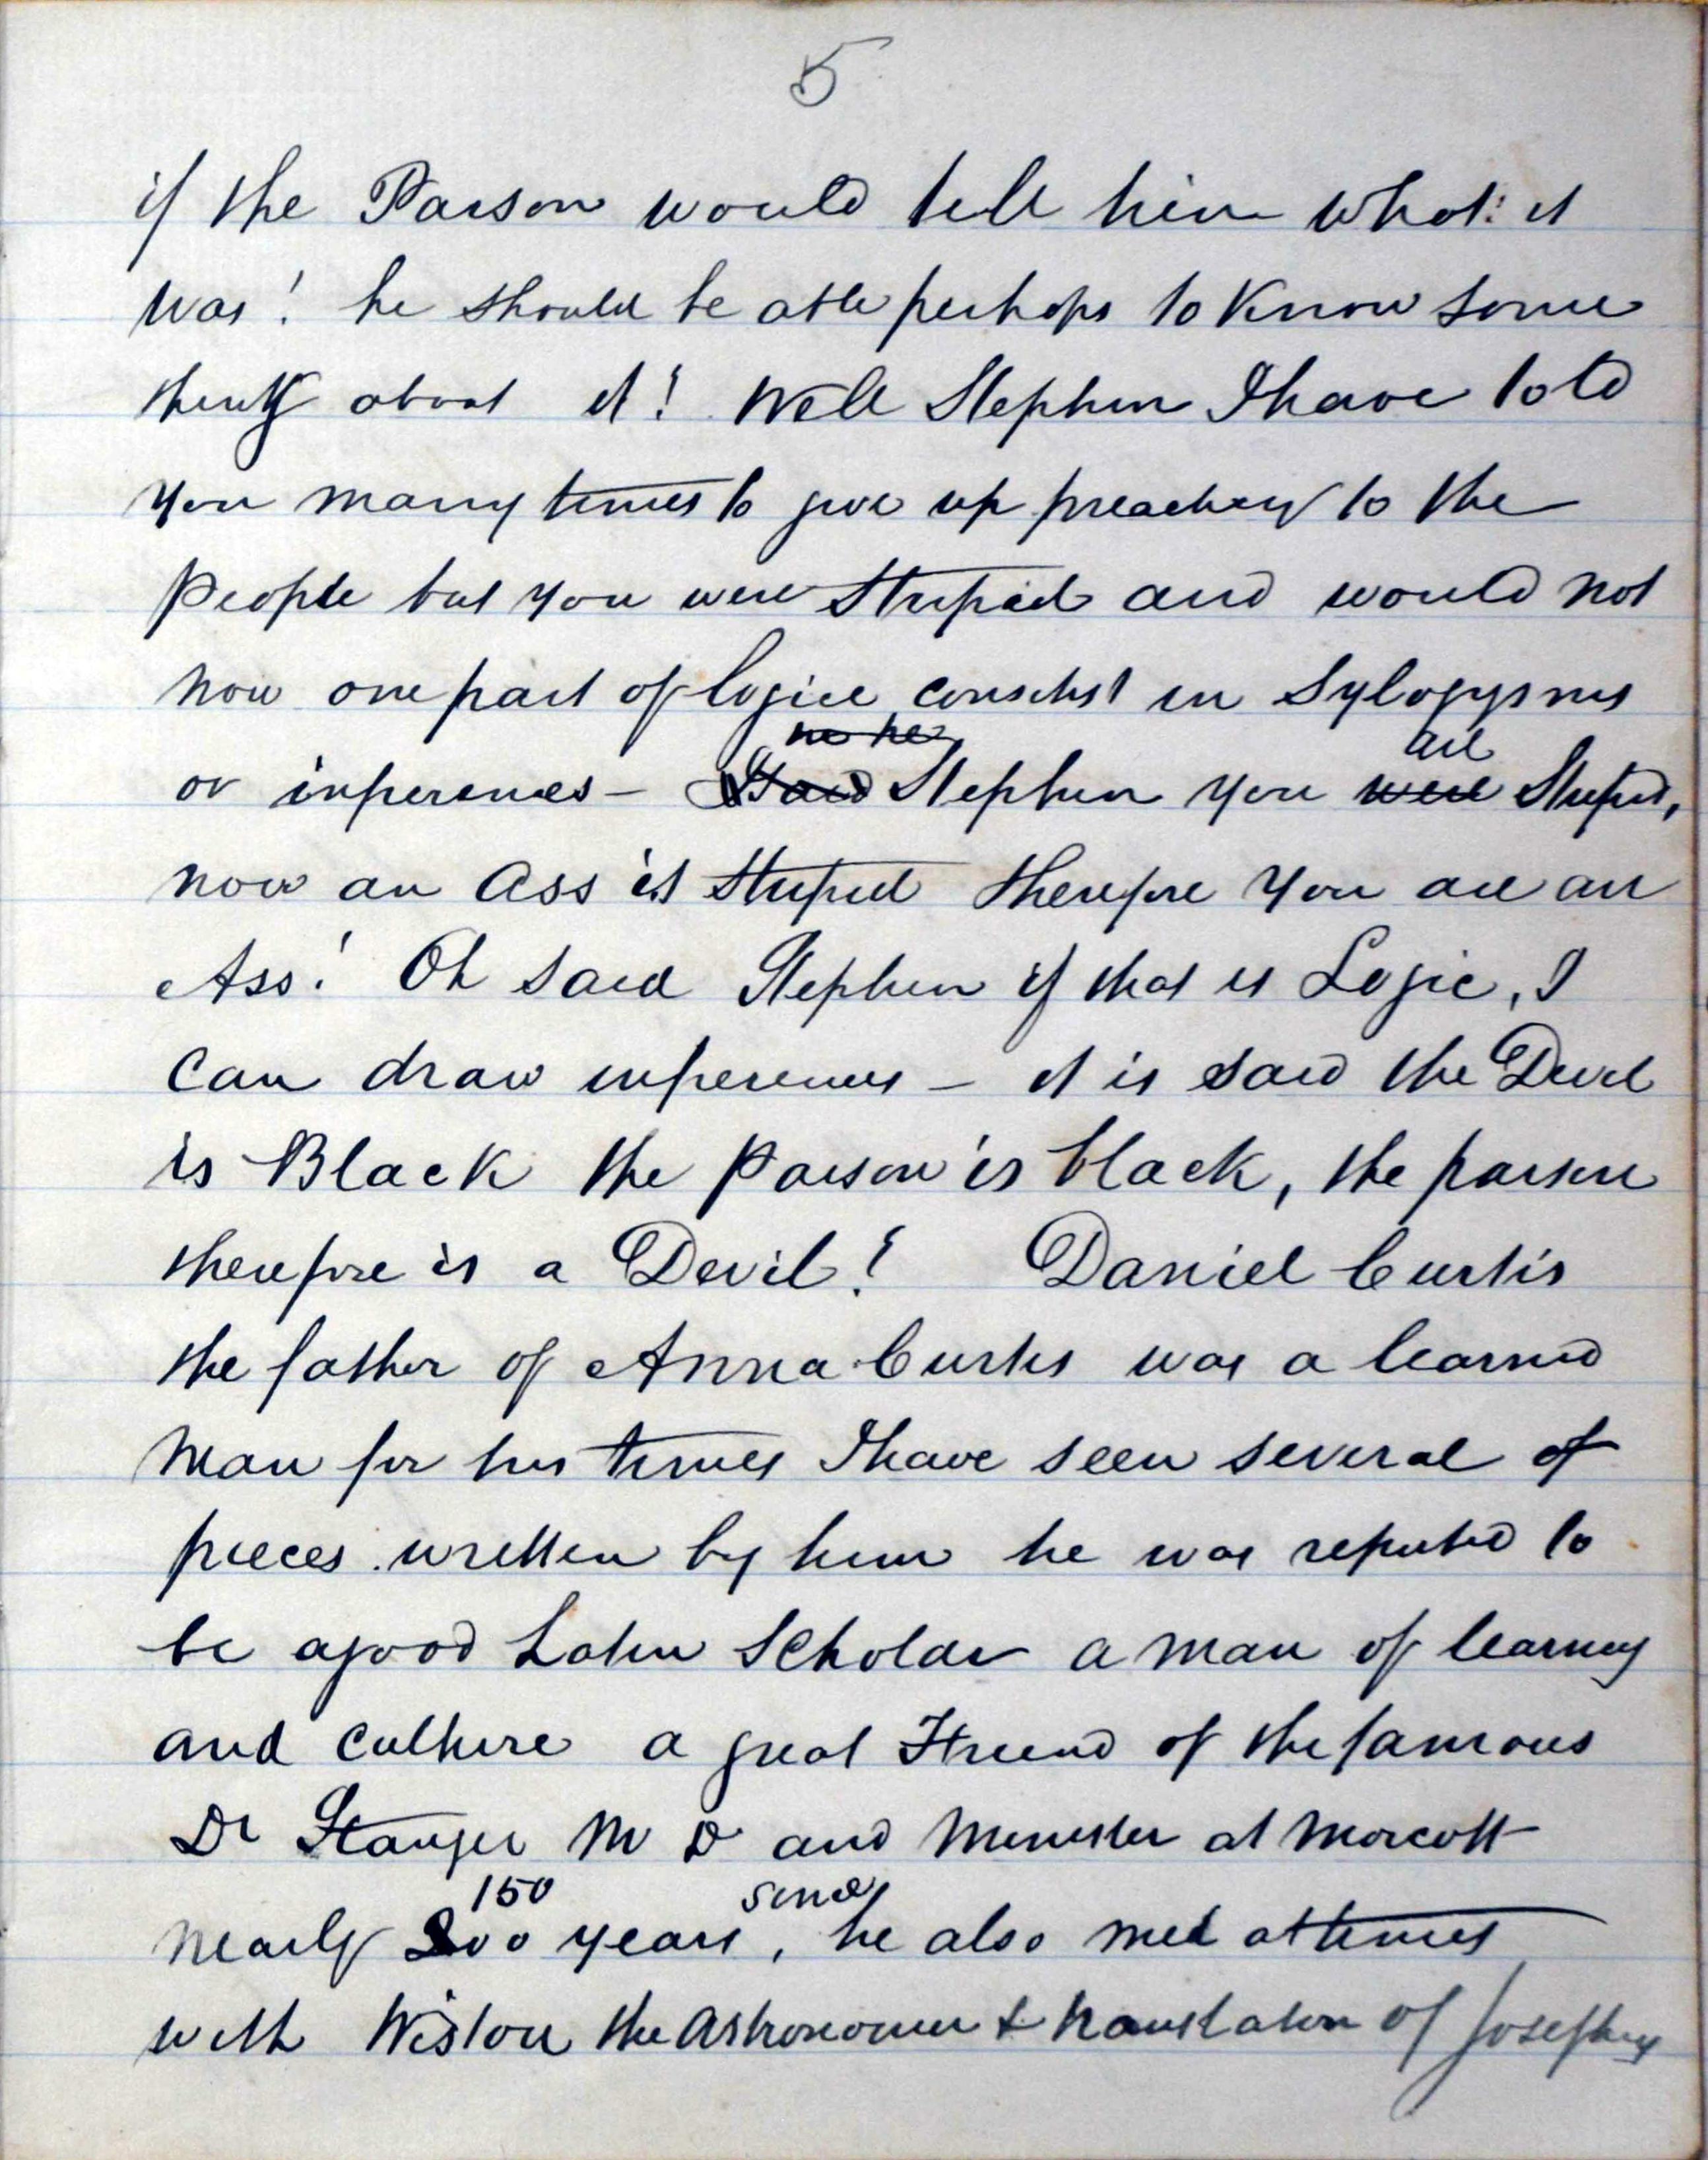 5
if the Parson would tell him what: it
was! he should be able perhaps to Know some
thing about it! Well Stephen I have told
you many times to give up preaching to the
People but you were Stupid and would not
now one part of logice consists in Sylogysms
no he
are
or inferences – Said Stephen you were Stupid,
now an Ass is Stupid therefore you are an
Ass! Oh said Stephen if that is Logic, I
can draw inferences – it is said the Devil
is Black the Parson is black, the parson
therefore is a Devil! Daniel Curtis
the father of Anna Curtis was a learned
man for his times I have seen several of
pieces written by him he was reputed to
be a good Latin Scholar a man of learning
and culture a great Friend of the famous
Dr Stanger M D and Minister at Morcott
150 since
nearly 200 years, he also met at times
with Wiston the Astronomer & translator of Josephus